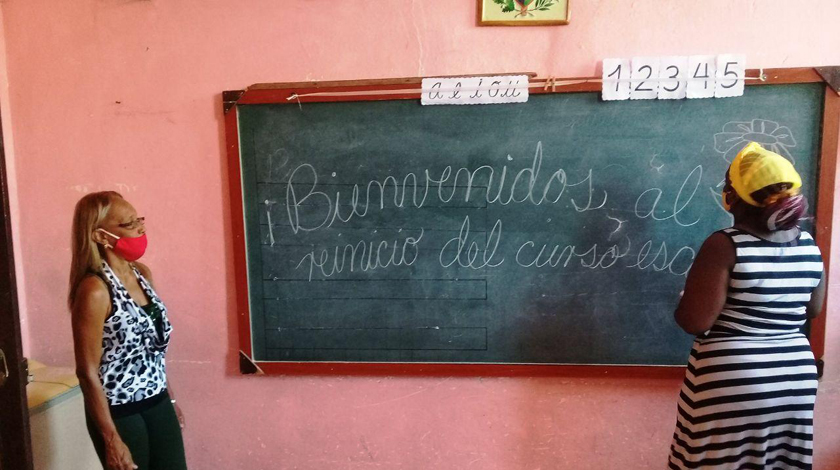 a e i o u
1 2 3 4 5
¡Bienvenidos al
reinicio del curso